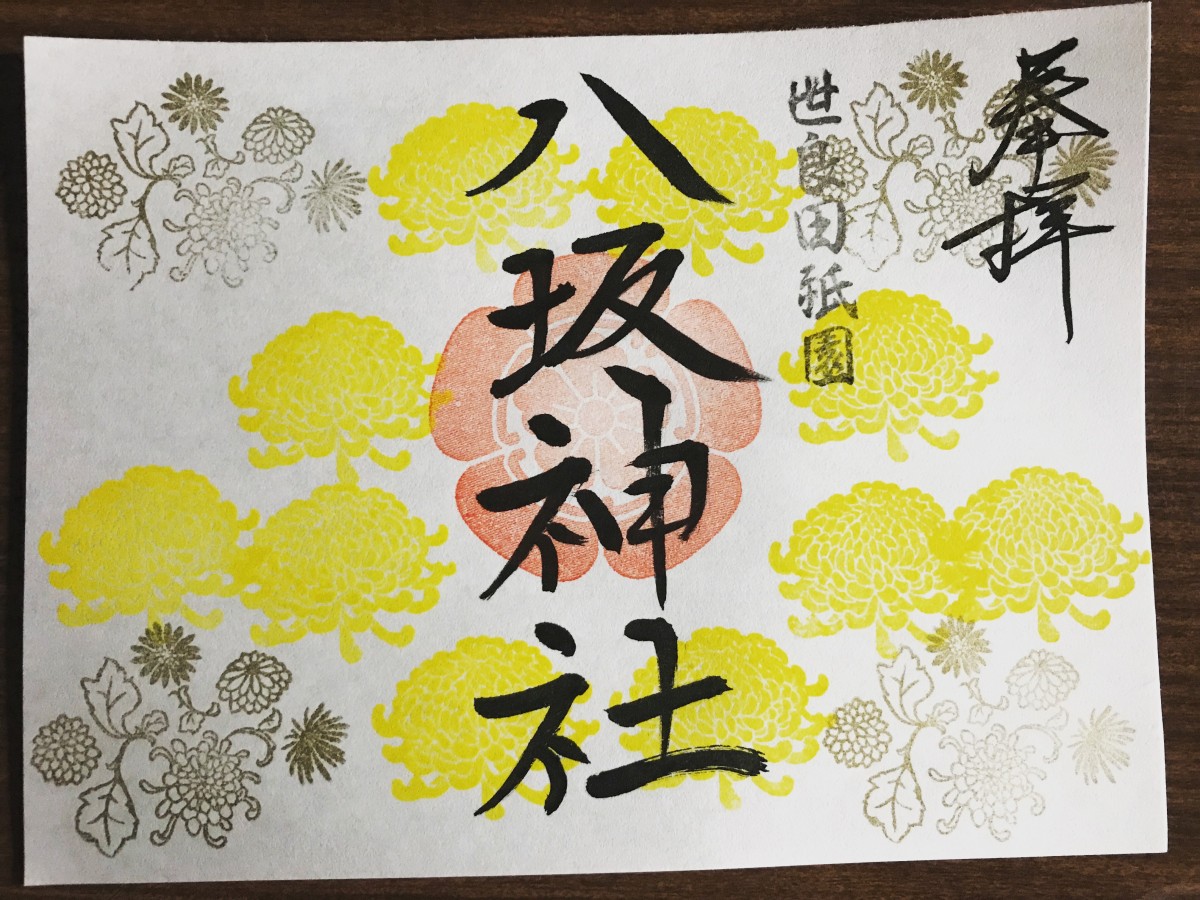 奉拝
世良田祇園
八坂神社